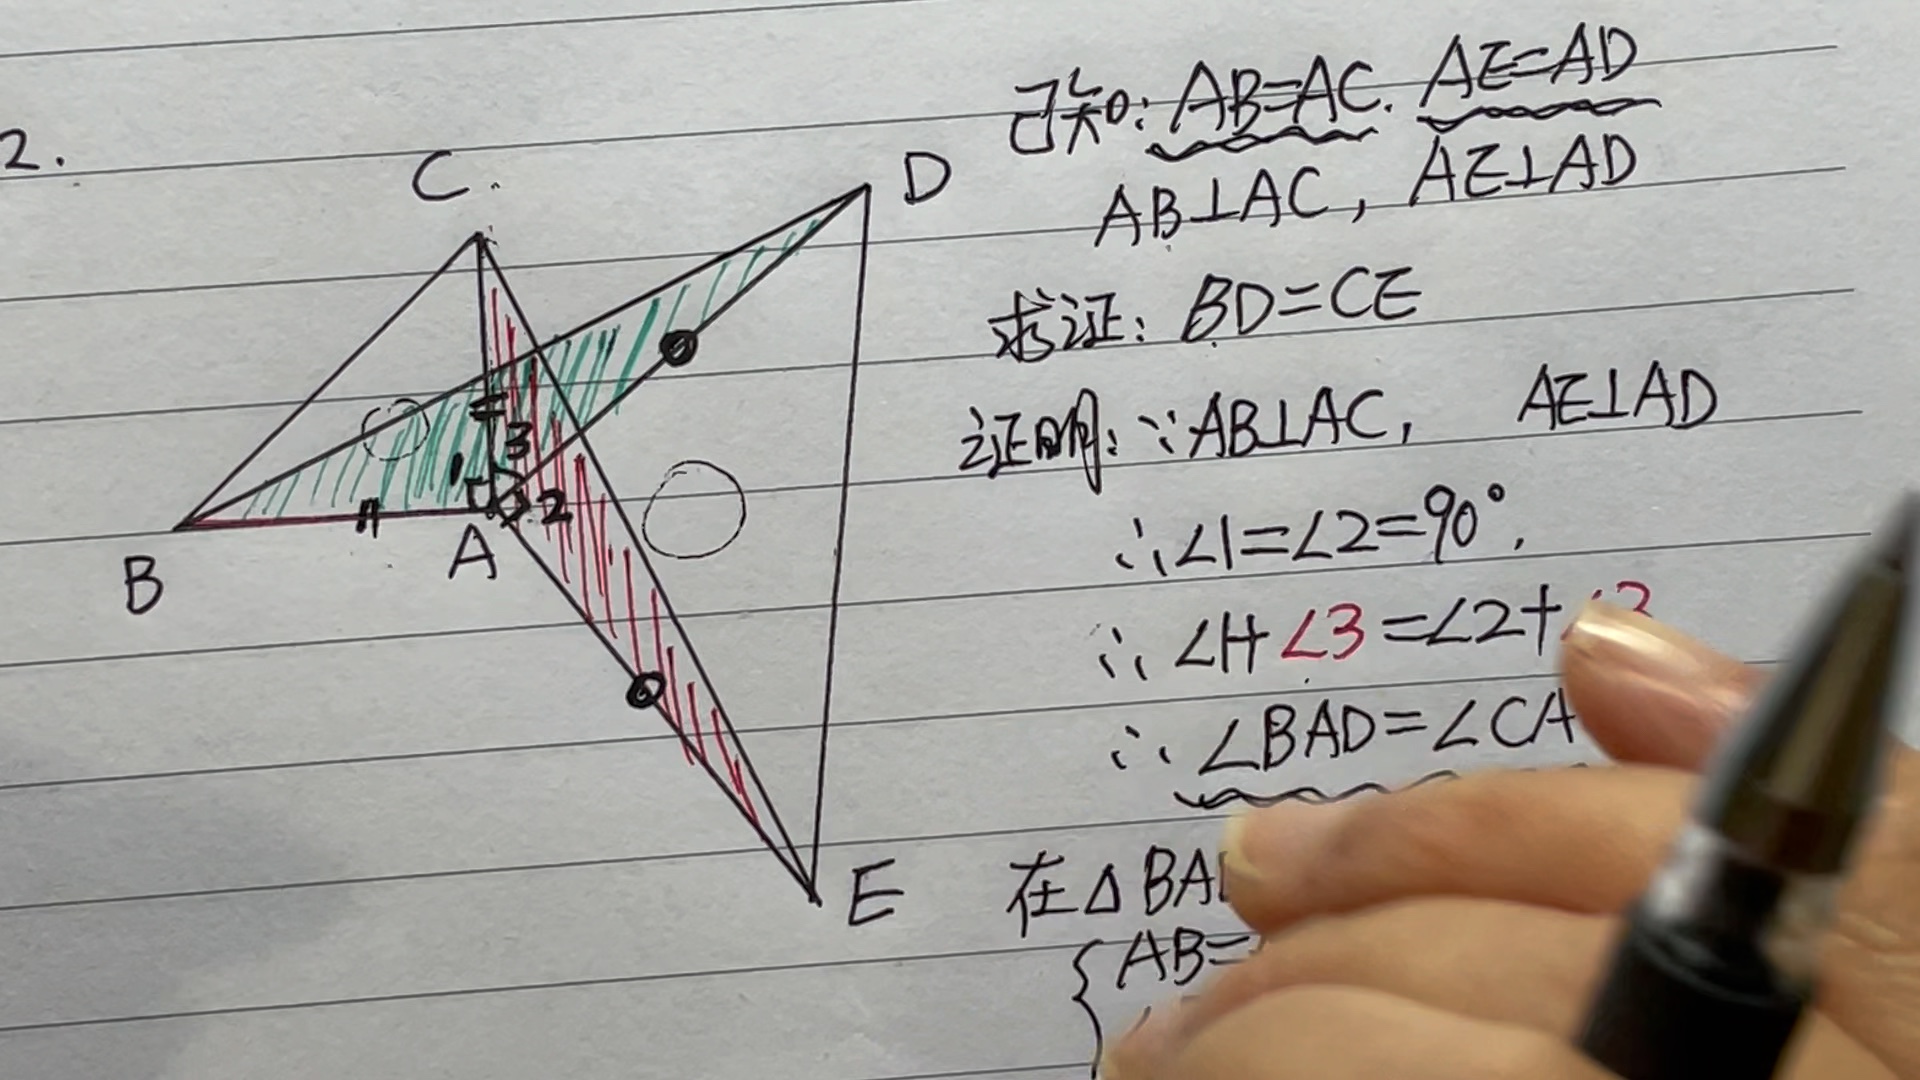 2.
C
D
3
1
2
A
B
E
已知: AB=AC. AE=AD
AB⊥AC, AE⊥AD
求证: BD=CE
证明: ∵AB⊥AC, AE⊥AD
∴∠1=∠2=90°.
∴∠1+∠3=∠2+∠3
∴∠BAD=∠CA
在△BAD
{AB=